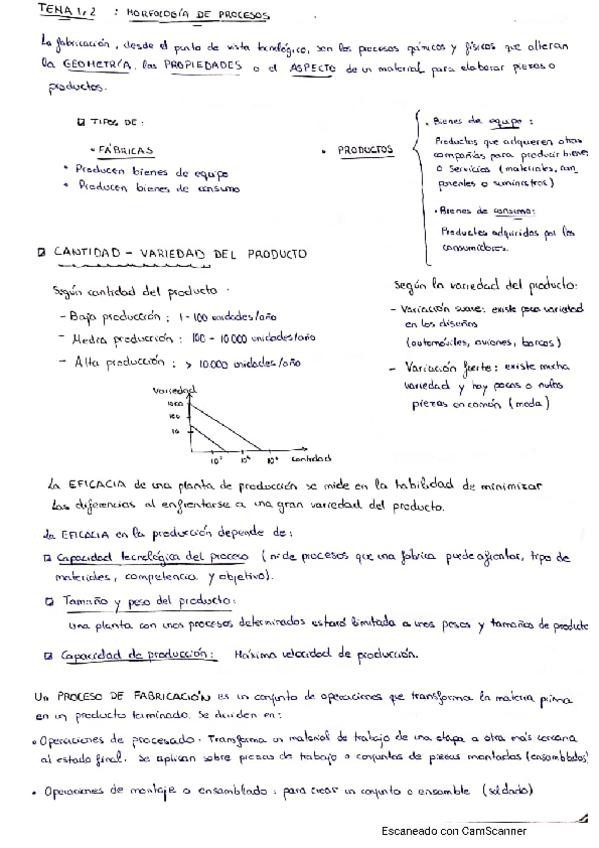 TEMA 1 y 2 : MORFOLOGÍA DE PROCESOS
La fabricación, desde el punto de vista tecnológico, son los procesos químicos y físicos que alteran
la GEOMETRÍA, las PROPIEDADES o el ASPECTO de un material para elaborar piezas o
productos.
TIPOS DE:
• FÁBRICAS
* Producen bienes de equipo
* Producen bienes de consumo
• PRODUCTOS
• Bienes de equipo:
Productos que adquieren otras
compañías para producir bienes
o servicios (materiales, com
ponentes o suministros)
• Bienes de consumo:
Productos adquiridos por los
consumidores.
CANTIDAD - VARIEDAD DEL PRODUCTO
Según cantidad del producto.
- Baja producción: 1-100 unidades/año
- Media producción: 100 - 10000 unidades/año
- Alta producción: > 10000 unidades/año
Según la variedad del producto:
- Variación suave: existe poca variedad
en los diseños
(automóviles, aviones, barcos)
- Variación fuerte: existe mucha
variedad y hay pocas o nulas
piezas en común (moda)
Variedad
1000
100
10
10² 10⁴ Cantidad
La EFICACIA de una planta de producción se mide en la habilidad de minimizar
las diferencias al enfrentarse a una gran variedad del producto.
La EFICACIA en la producción depende de:
Capacidad tecnológica del proceso (nº de procesos que una fábrica puede ajicatar, tipo de
materiales, competencia y objetivo).
Tamaño y peso del producto:
una planta con unos procesos determinados estará limitada a unos pesos y tamaños de producto
Capacidad de producción: Máxima velocidad de producción.
Un PROCESO DE FABRICACIÓN es un conjunto de operaciones que transforma la materia prima
en un producto terminado. Se dividen en:
• Operaciones de procesado. Transforma un material de trabajo de una etapa a otra más cercana
al estado final. Se aplican sobre piezas de trabajo o conjuntos de piezas montadas (ensamblados)
• Operaciones de montaje o ensamblado: para crear un conjunto o ensamble (soldado)
Escaneado con CamScanner